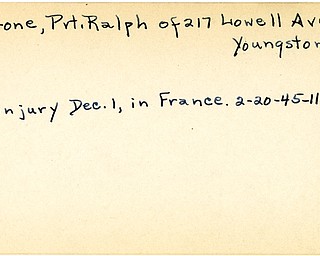 one, Pvt. Ralph of 217 Lowell Av
Youngsto
njury Dec. 1, in France. 2-20-45-11